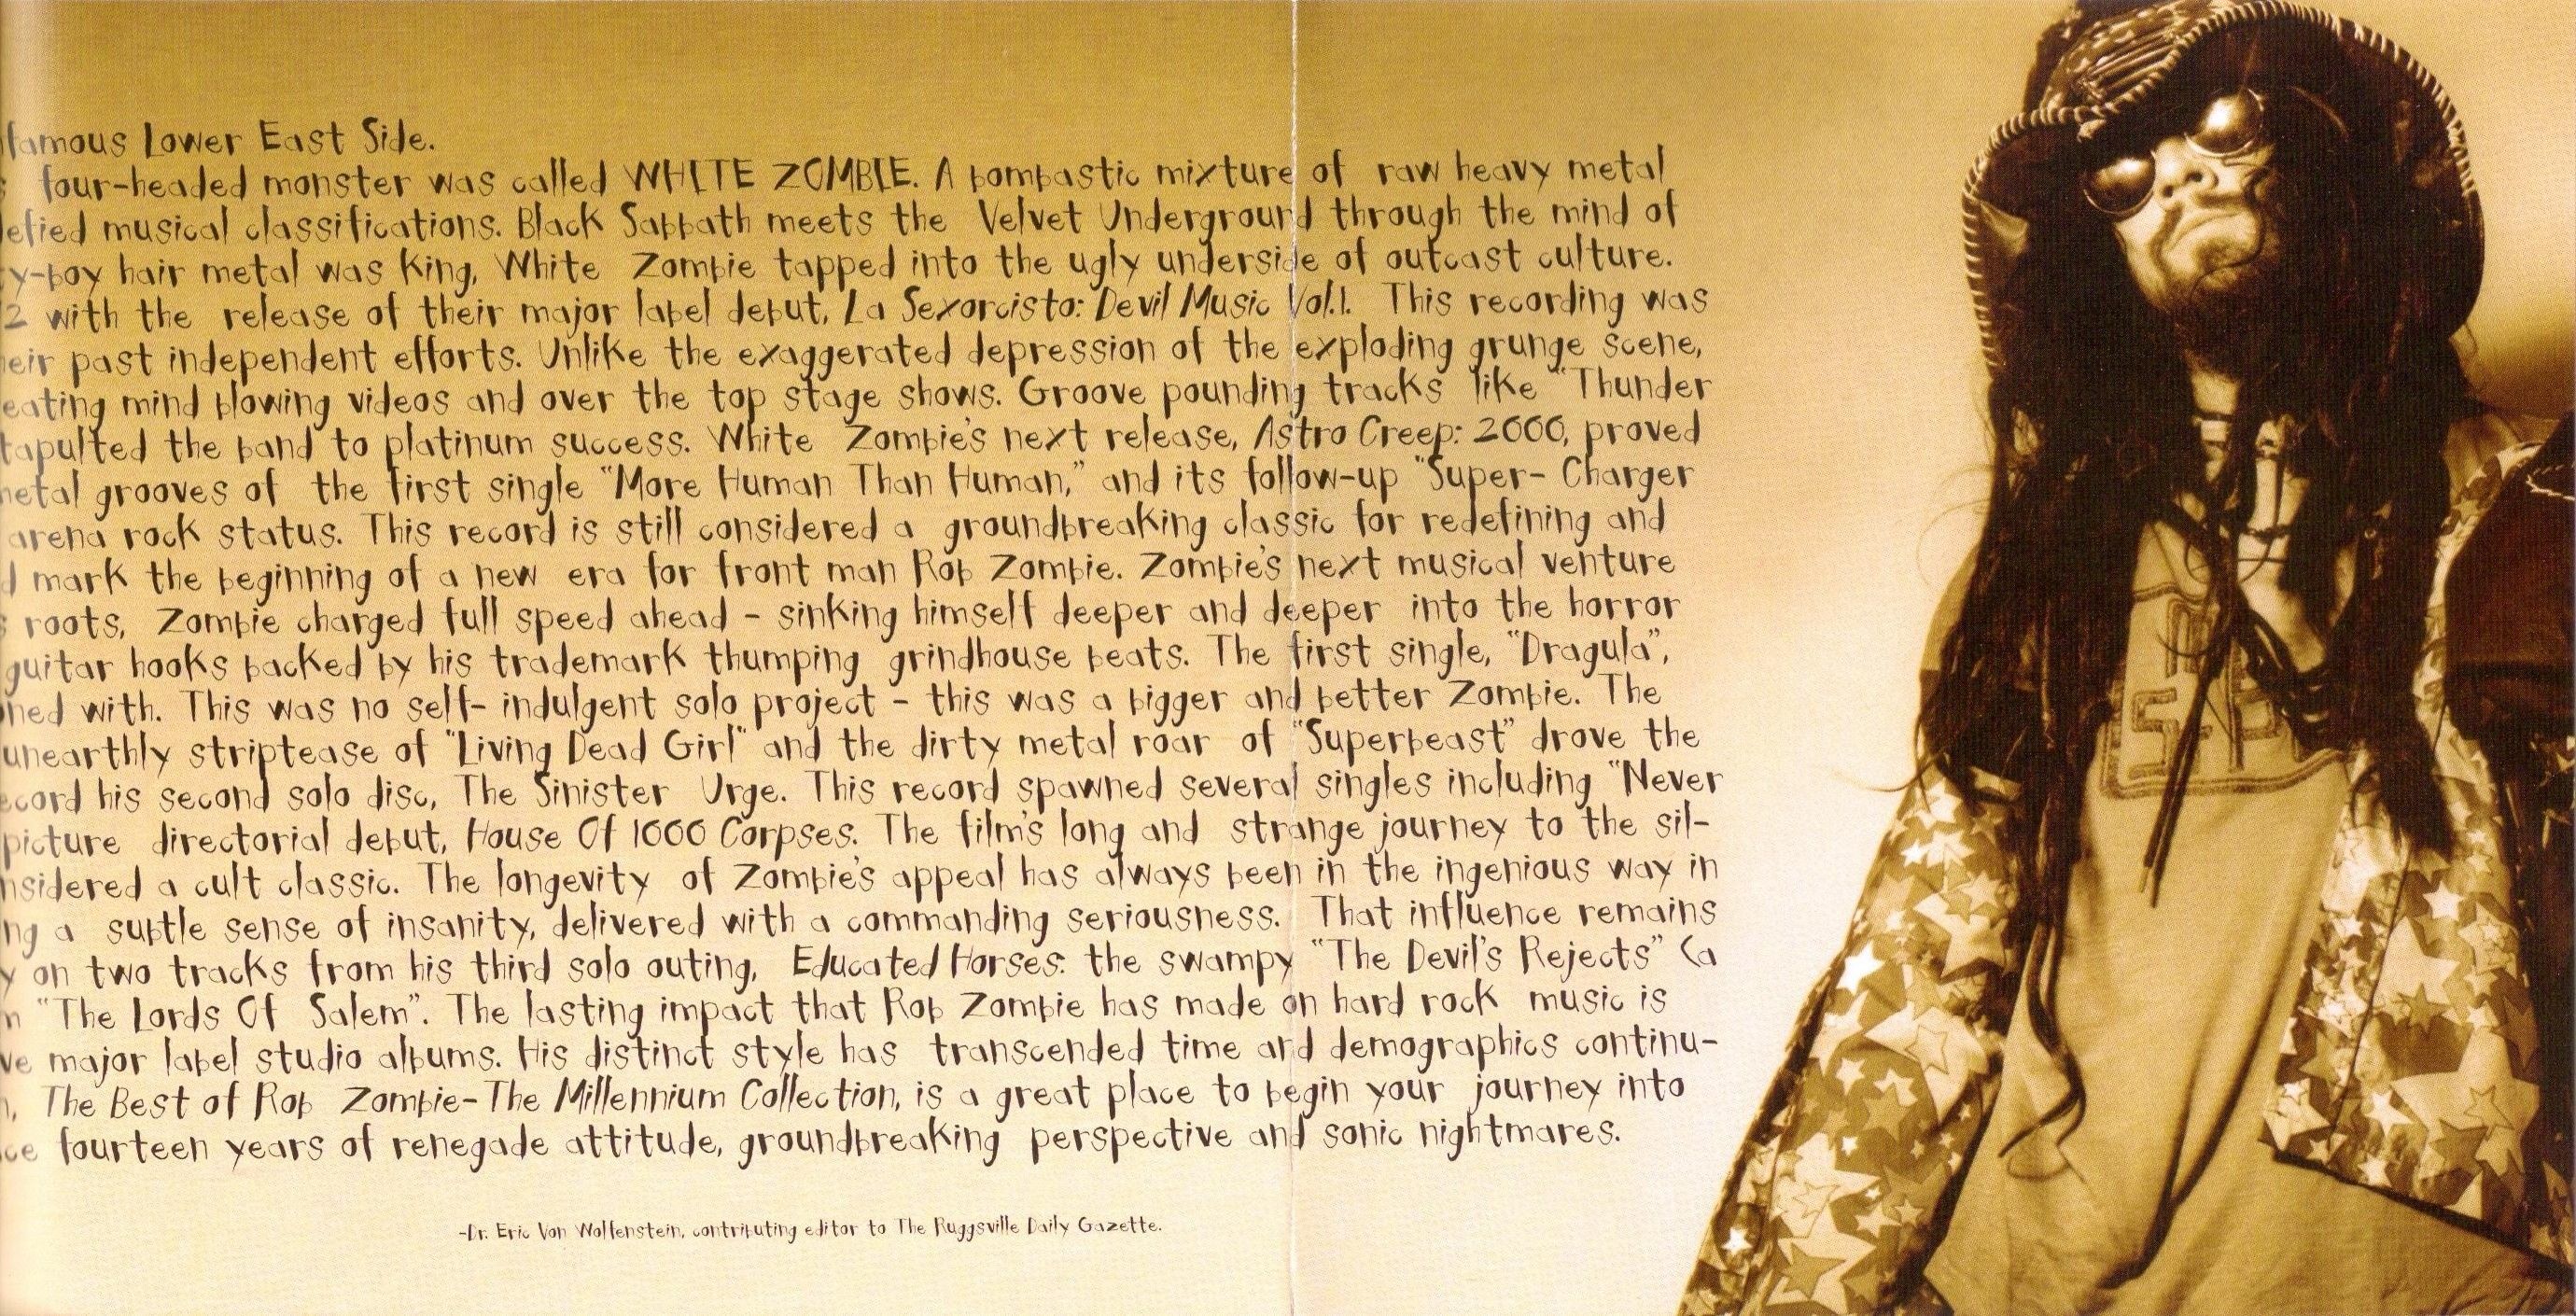 famous Lower East Side.
four-headed monster was called WHITE ZOMBIE. A bombastic mixture of raw heavy metal
defied musical classifications. Black Sabbath meets the Velvet Underground through the mind of
y-boy hair metal was king, White Zombie tapped into the ugly underside of outcast culture.
2 with the release of their major label debut, La Sexorcisto: Devil Music Vol.1. This recording was
heir past independent efforts. Unlike the exaggerated depression of the exploding grunge scene,
eating mind blowing videos and over the top stage shows. Groove pounding tracks like "Thunder
tapulted the band to platinum success. White Zombie's next release, Astro Creep: 2000, proved
metal grooves of the first single "More Human Than Human," and its follow-up "Super- Charger
arena rock status. This record is still considered a groundbreaking classic for redefining and
d mark the beginning of a new era for front man Rob Zombie. Zombie's next musical venture
s roots, Zombie charged full speed ahead - sinking himself deeper and deeper into the horror
guitar hooks backed by his trademark thumping grindhouse beats. The first single, "Dragula",
oned with. This was no self- indulgent solo project - this was a bigger and better Zombie. The
unearthly striptease of "Living Dead Girl" and the dirty metal roar of "Superbeast" drove the
ecord his second solo disc, The Sinister Urge. This record spawned several singles including "Never
picture directorial debut, House Of 1000 Corpses. The film's long and strange journey to the sil-
nsidered a cult classic. The longevity of Zombie's appeal has always been in the ingenious way in
ng a subtle sense of insanity, delivered with a commanding seriousness. That influence remains
y on two tracks from his third solo outing, Educated Horses: the swampy "The Devil's Rejects" (a
m "The Lords Of Salem". The lasting impact that Rob Zombie has made on hard rock music is
ve major label studio albums. His distinct style has transcended time and demographics continu-
n, The Best of Rob Zombie-The Millennium Collection, is a great place to begin your journey into
ce fourteen years of renegade attitude, groundbreaking perspective and sonic nightmares.
-Dr. Eric Von Wolfenstein, contributing editor to The Ruggsville Daily Gazette.